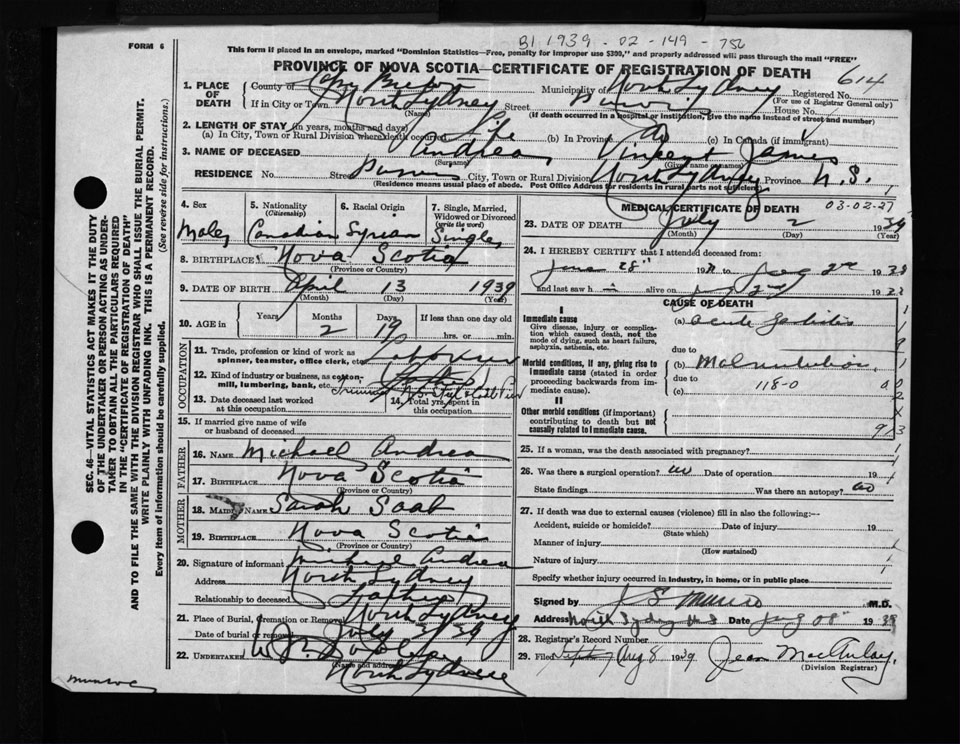 B1.1939 - 02-149-756
FORM 6
This form if placed in an envelope, marked "Dominion Statistics—Free, penalty for improper use $300," and properly addressed will pass through the mail "FREE"
PROVINCE OF NOVA SCOTIA—CERTIFICATE OF REGISTRATION OF DEATH
614
1. PLACE OF DEATH
County of Cape Breton Municipality of North Sydney Registered No.
(For use of Registrar General only)
If in City or Town North Sydney Street House No.
(Name) (If death occurred in a hospital or institution, give the name instead of street and number)
2. LENGTH OF STAY (in years, months and days)
(a) In City, Town or Rural Division where death occurred Life (b) In Province do (c) In Canada (if immigrant)
3. NAME OF DECEASED Andrea, Vincent James
(Surname) (Given name or names)
RESIDENCE No. Street City, Town or Rural Division North Sydney Province N.S.
(Residence means usual place of abode. Post Office Address for residents in rural parts not sufficient)
4. Sex
Male
5. Nationality
(Citizenship)
Canadian
6. Racial Origin
Syrian
7. Single, Married, Widowed or Divorced
(write the word)
Single
8. BIRTHPLACE Nova Scotia
(Province or Country)
9. DATE OF BIRTH April 13 1939
(Month) (Day) (Year)
10. AGE in Years Months Days If less than one day old
2 19 hrs. or min.
OCCUPATION
11. Trade, profession or kind of work as spinner, teamster, office clerk, etc.
12. Kind of industry or business, as cotton-mill, lumbering, bank, etc.
13. Date deceased last worked at this occupation
14. Total yrs. spent in this occupation
15. If married give name of wife or husband of deceased
FATHER
16. NAME Michael Andrea
17. BIRTHPLACE Nova Scotia
(Province or Country)
MOTHER
18. MAIDEN NAME Sarah Saab
19. BIRTHPLACE Nova Scotia
(Province or Country)
20. Signature of informant Michael Andrea
Address North Sydney
Relationship to deceased Father
21. Place of Burial, Cremation or Removal North Sydney
Date of burial or removal July 3/39
22. UNDERTAKER
(Name and address)
North Sydney
03-02-27
MEDICAL CERTIFICATE OF DEATH
23. DATE OF DEATH July 2 1939
(Month) (Day) (Year)
24. I HEREBY CERTIFY that I attended deceased from:
June 28" 19 to 2nd 1939
and last saw h alive on 2nd 1939
CAUSE OF DEATH
I
Immediate cause
Give disease, injury or complication which caused death, not the mode of dying, such as heart failure, asphyxia, asthenia, etc.
(a) Acute Gastritis
due to
Morbid conditions, if any, giving rise to immediate cause (stated in order proceeding backwards from immediate cause).
(b) Malnutrition
due to
118-0
(c)
II
Other morbid conditions (if important) contributing to death but not causally related to immediate cause.
25. If a woman, was the death associated with pregnancy?
26. Was there a surgical operation? no Date of operation 19
State findings Was there an autopsy? no
27. If death was due to external causes (violence) fill in also the following:—
Accident, suicide or homicide? Date of injury 19
(State which)
Manner of injury
(How sustained)
Nature of injury
Specify whether injury occurred in industry, in home, or in public place
Signed by J S Munro M.D.
Address North Sydney N S Date 08" 1939
28. Registrar's Record Number
29. Filed Aug 8 1939 Jean MacAulay.
(Division Registrar)
Munro
SEC. 46—VITAL STATISTICS ACT MAKES IT THE DUTY OF THE UNDERTAKER OR PERSON ACTING AS UNDERTAKER TO OBTAIN ALL THE PARTICULARS REQUIRED IN THE "CERTIFICATE OF REGISTRATION OF DEATH" AND TO FILE THE SAME WITH THE DIVISION REGISTRAR WHO SHALL ISSUE THE BURIAL PERMIT.
WRITE PLAINLY WITH UNFADING INK. THIS IS A PERMANENT RECORD.
Every item of information should be carefully supplied. (See reverse side for instructions.)